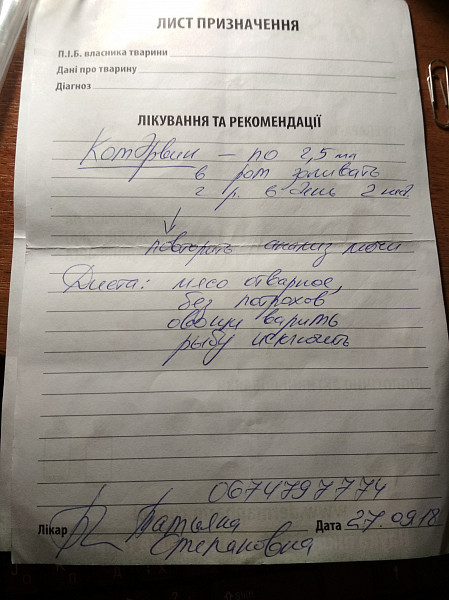 ЛИСТ ПРИЗНАЧЕННЯ
П.І.Б. власника тварини
Дані про тварину
Діагноз
ЛІКУВАННЯ ТА РЕКОМЕНДАЦІЇ
КотЭрвин – по 2,5 мл
в рот заливать
2 р. в день 2 нед.
↓
повторить анализ мочи
Диета: мясо отварное,
без потрохов
овощи варить
рыбу исключить
0674797774
Лікар Татьяна Дата 27.09.18
Степановна